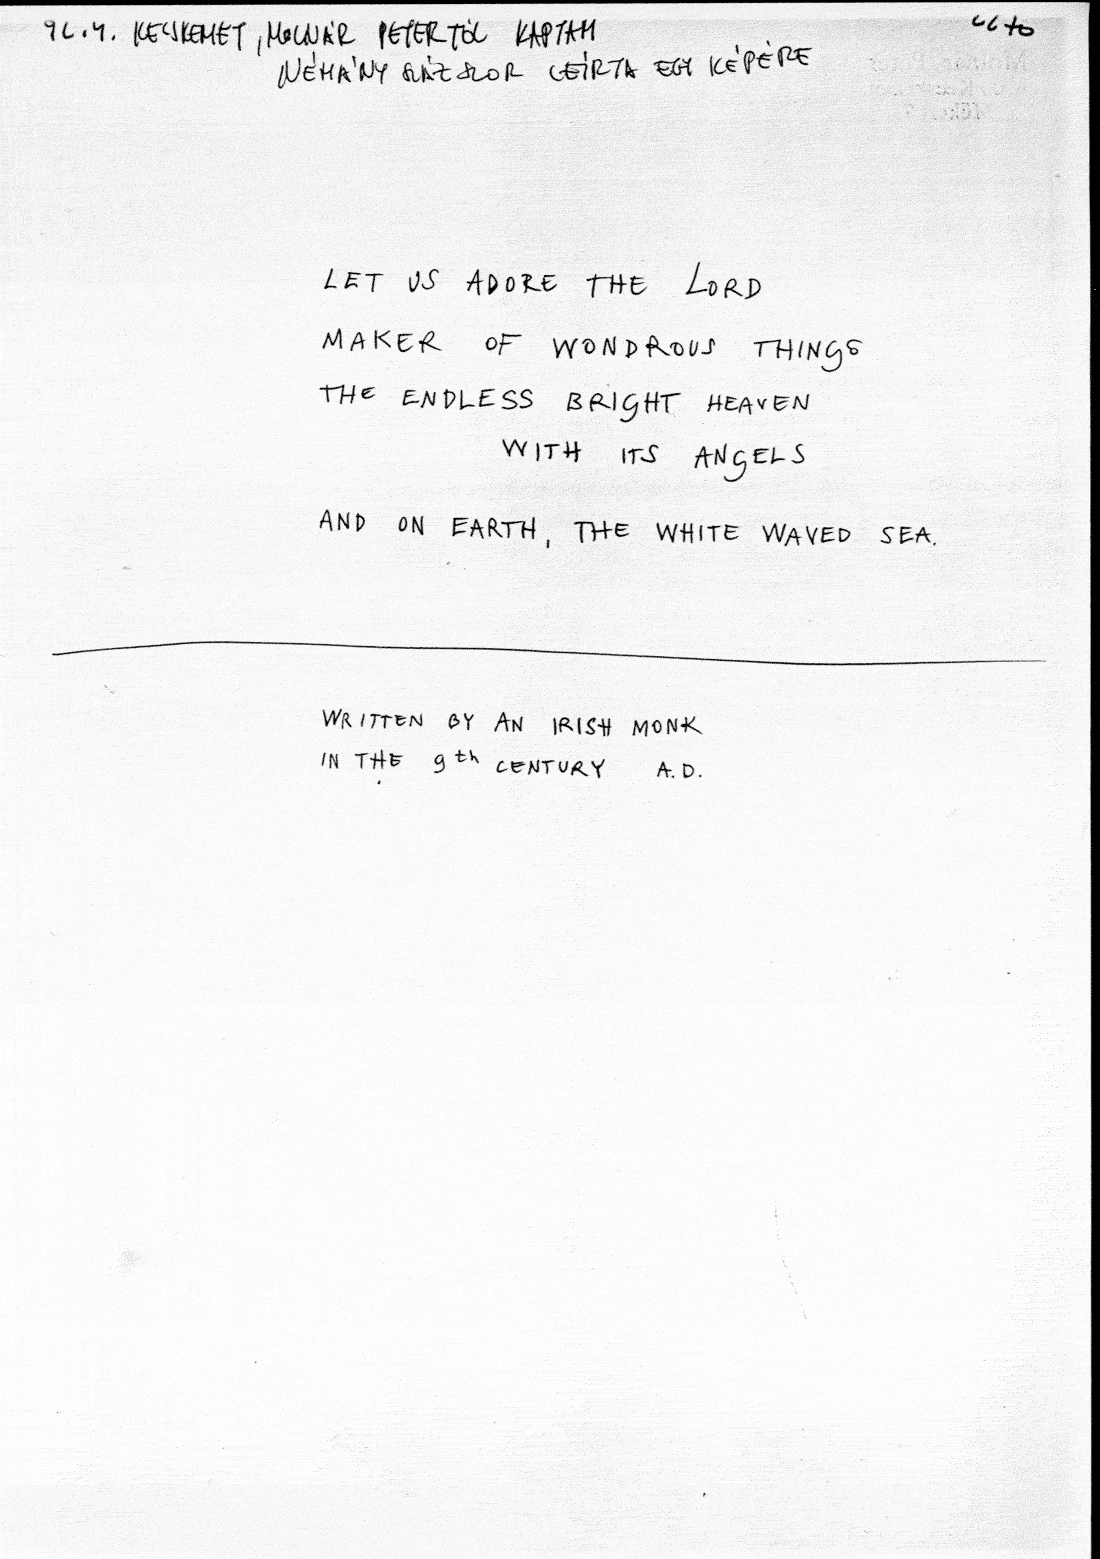 KECSKEMÉT, MOLNÁR PÉTERTŐL KAPTAM
NÉHÁNY SZÁZSZOR LEÍRTA EGY KÉPÉRE
LET US ADORE THE LORD
MAKER OF WONDROUS THINGS
THE ENDLESS BRIGHT HEAVEN
WITH ITS ANGELS
AND ON EARTH, THE WHITE WAVED SEA.
WRITTEN BY AN IRISH MONK
IN THE 9th CENTURY A.D.